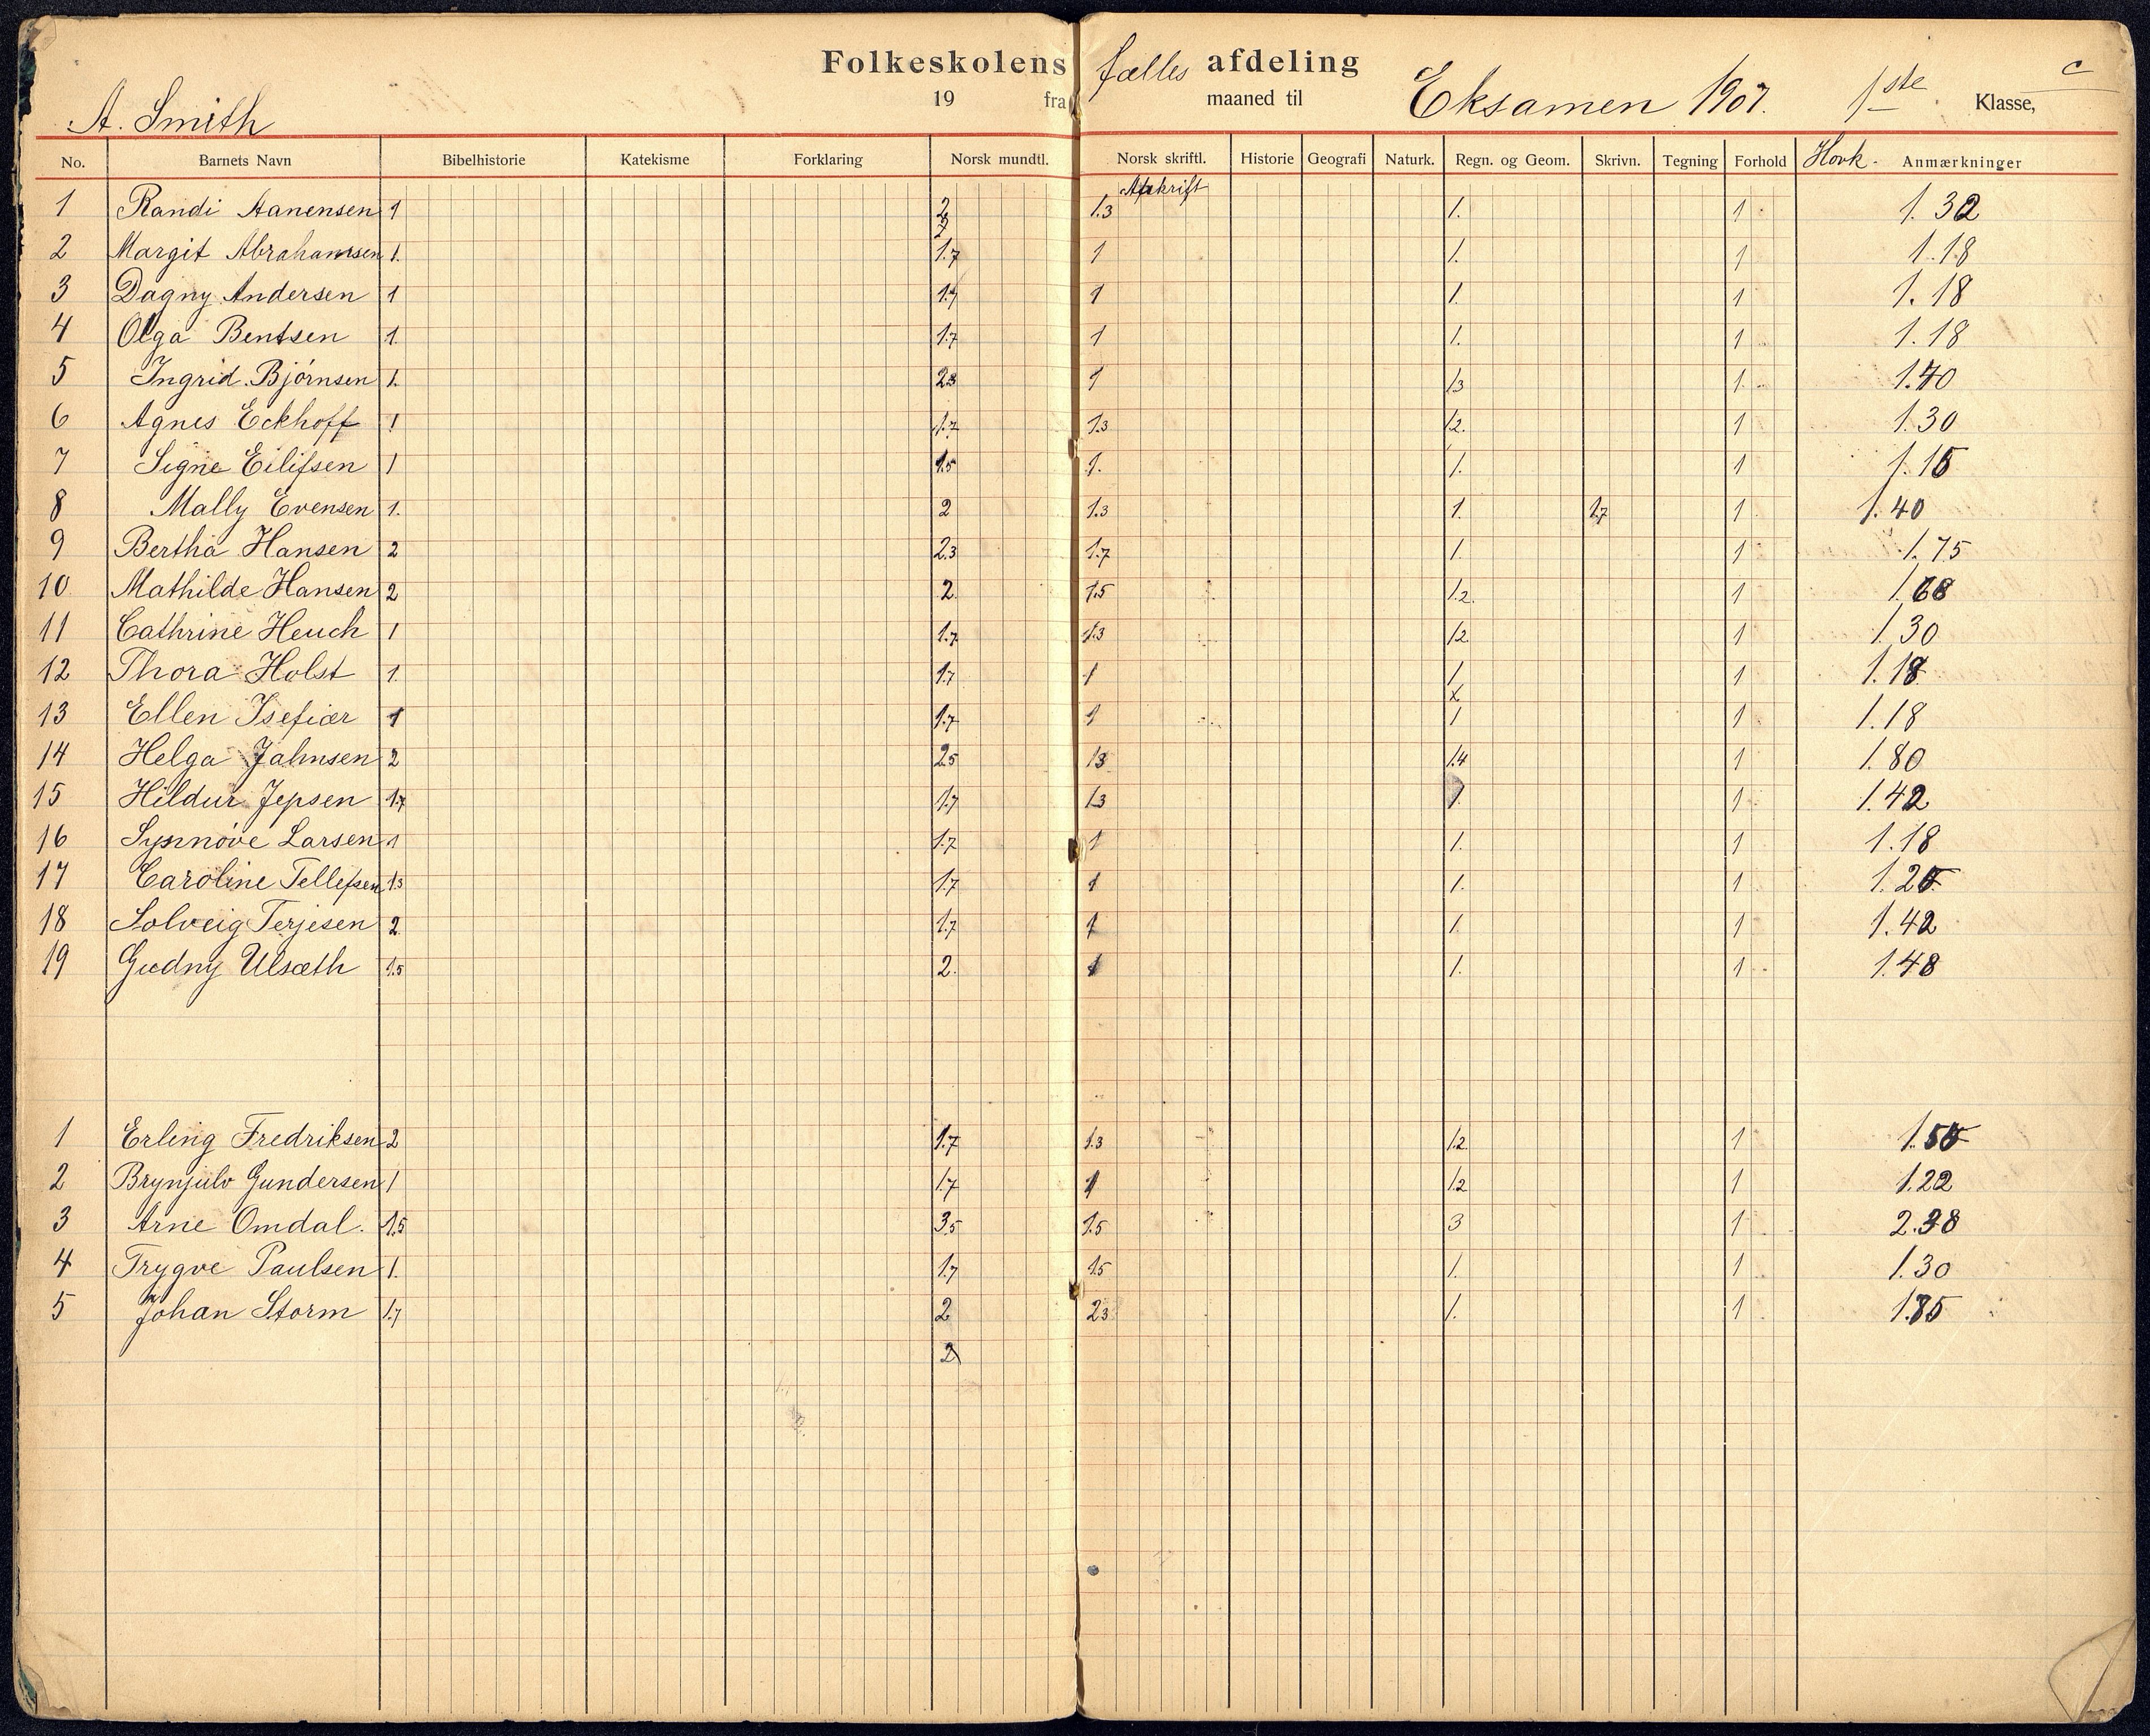 Folkeskolens fælles afdeling
A. Smith 19 fra maaned til Eksamen 1907. 1ste Klasse, c
No. Barnets Navn Bibelhistorie Katekisme Forklaring Norsk mundtl. Norsk skriftl. Historie Geografi Naturk. Regn. og Geom. Skrivn. Tegning Forhold Hovk. Anmærkninger
Afskrift
1 Randi Aanensen 1 2 1.3 1. 1 1.32
2
2 Margit Abrahamsen 1. 1.7 1 1. 1 1.18
3 Dagny Andersen 1 1.7 1 1. 1 1.18
4 Olga Bentsen 1. 1.7 1 1. 1 1.18
5 Ingrid Bjørnsen 1. 2.3 1 1.3 1. 1.40
6 Agnes Eckhoff 1 1.7 1.3 1.2. 1 1.30
7 Signe Eilifsen 1 1.5 1. 1. 1 1.15
8 Mally Evensen 1. 2 1.3 1. 1.7 1 1.40
9 Bertha Hansen 2 2.3 1.7 1. 1 1.75
10 Mathilde Hansen 2 2. 1.5 1.2. 1 1.68
11 Cathrine Heuch 1 1.7 1.3 1.2 1 1.30
12 Thora Holst 1. 1.7 1 1 1 1.18
x
13 Ellen Isefiær 1 1.7 1 1 1 1.18
14 Helga Jahnsen 2 2.5 1.3 1.4 1 1.80
15 Hildur Jepsen 1.7 1.7 1.3 1. 1 1.42
16 Synnøve Larsen 1 1.7 1 1. 1 1.18
17 Caroline Tellefsen 1.3 1.7 1 1. 1 1.25
18 Solveig Terjesen 2 1.7 1 1. 1 1.42
19 Gudny Ulsæth 1.5 2. 1 1. 1 1.48
1 Erling Fredriksen 2 1.7 1.3 1.2 1 1.55
2 Brynjulv Gundersen 1 1.7 1 1.2 1 1.22
3 Arne Omdal. 1.5 3.5 1.5 3 1 2.38
4 Trygve Paulsen 1. 1.7 1.5 1. 1 1.30
5 Johan Storm 1.7 2 2.3 1. 1 1.85
2